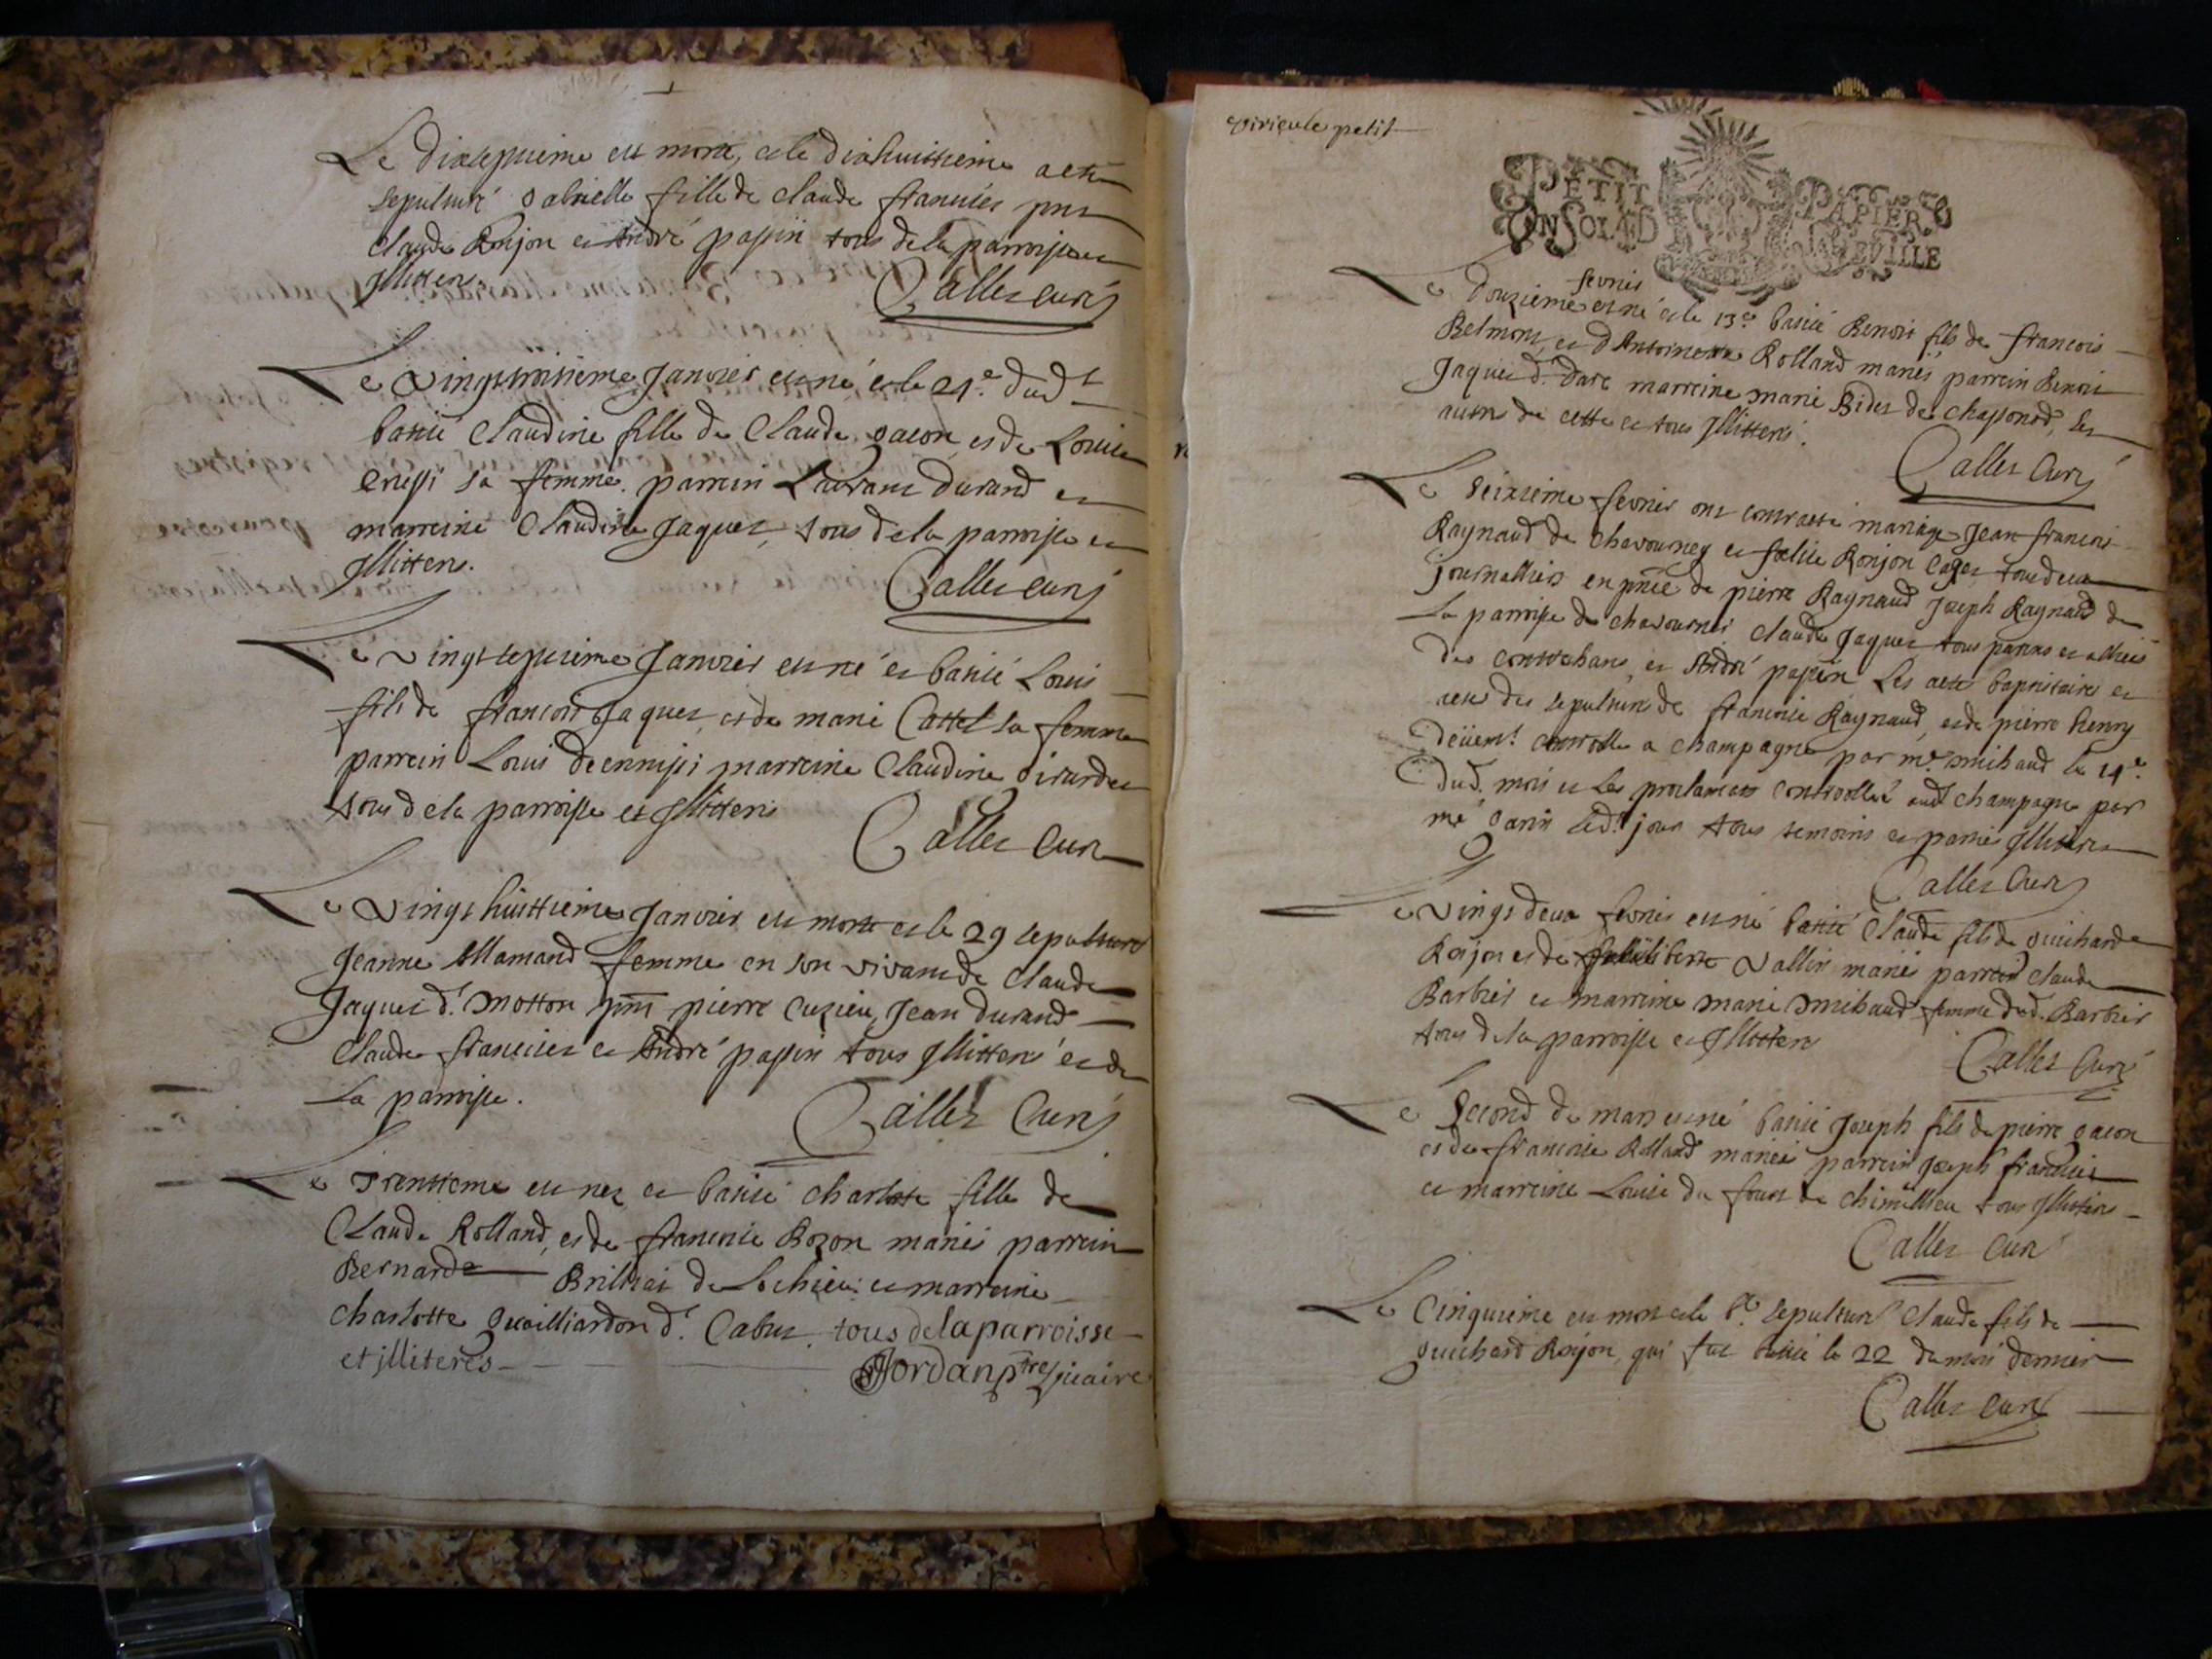 Le dixseptieme est morte, et le dixhuittieme a été
sepulturé Gabrielle fille de Claude francillet pnts
Claude Ronjon et André passin tous de la parroisse et
Jllitterés.
Callet curé
Le Vingttroisieme Janvier est né et le 24.e dud.t
batisé Claudine fille de Claude Gacon et de Louise
Cressi sa femme. parrein Laurant durand et
marreine Claudine Jaquet, tous de la parroisse et
Jllitterés.
Callet curé
Le Vingtseptieme Janvier est né et batisé Louis
fils de francois Jaquet et de marie Cattet sa femme
parrein Louis marreine Claudine Girardet
tous de la parroisse et Jllitterés
Callet Curé
Le Vingthuittieme Janvier est morte et le 29 sepulturé
Jeanne Allamand femme en son vivant de Claude
Jaquet d.t Motton pnts pierre Cuzieu, Jean durand
Claude francillet et André passin tous Jllitterés et de
La parroisse.
Callet Curé
Le Trentieme est nez et batisé Charlotte fille de
Claude Rolland, et de francoise Bozon mariés parrein
Bernard Brilliat de Lochieu et marreine
Charlotte Guilliardon d.t Cabut tous de la parroisse
et jlliterés
Jordan p.tre vicaire
virieu le petit
PETIT PAPIER
UN SOL 4 D LE VILLE
fevrier
Le douzieme est né et le 13.e batisé Benoit fils de francois
Belmont et d'Antoinette Rolland mariés parrein Benoit
Jaquet d.t darc marreine marie Bidet de Chassonod, les
autres de cette et tous Jllitterés.
Callet Curé
Le Seizieme fevrier ont contracté mariage Jean francois
Raynaud de Chavourney et felise Ronjon tous deux
journalliers en pnce de pierre Raynaud Joseph Raynaud de
La parroisse de Chavournei Claude Jaquet tous parans et alliés
des contrahans, et André passin Les actes baptistaires et
actes des sepultures de francoise Raynaud, et de pierre henry
deüem.t controllé a champagne par m.e michaud le 14.e
dud. mois et les proclamats controollé aud champagne par
me Garin led. jour tous temoins et parties Jllitterés
Callet Curé
Le Vingt deux fevrier est né batisé Claude fils de Guichard
Ronjon et de Vallin mariés parrein Claude
Barbier et marreine marie michaud femme dud. Barbier
tous de la parroisse et Jllitterés
Callet Curé
Le Second de mars est né batisé Joseph fils de pierre Gacon
et de francoise Rolland mariés parrein Joseph francillet
et marreine Louise du four de Chimillieu tous Jllitterés
Callet Curé
Le Cinquieme est mort et le 6.e sepulturé Claude fils de
Guichard Ronjon, qui fut batisé le 22 du mois dernier
Callet curé